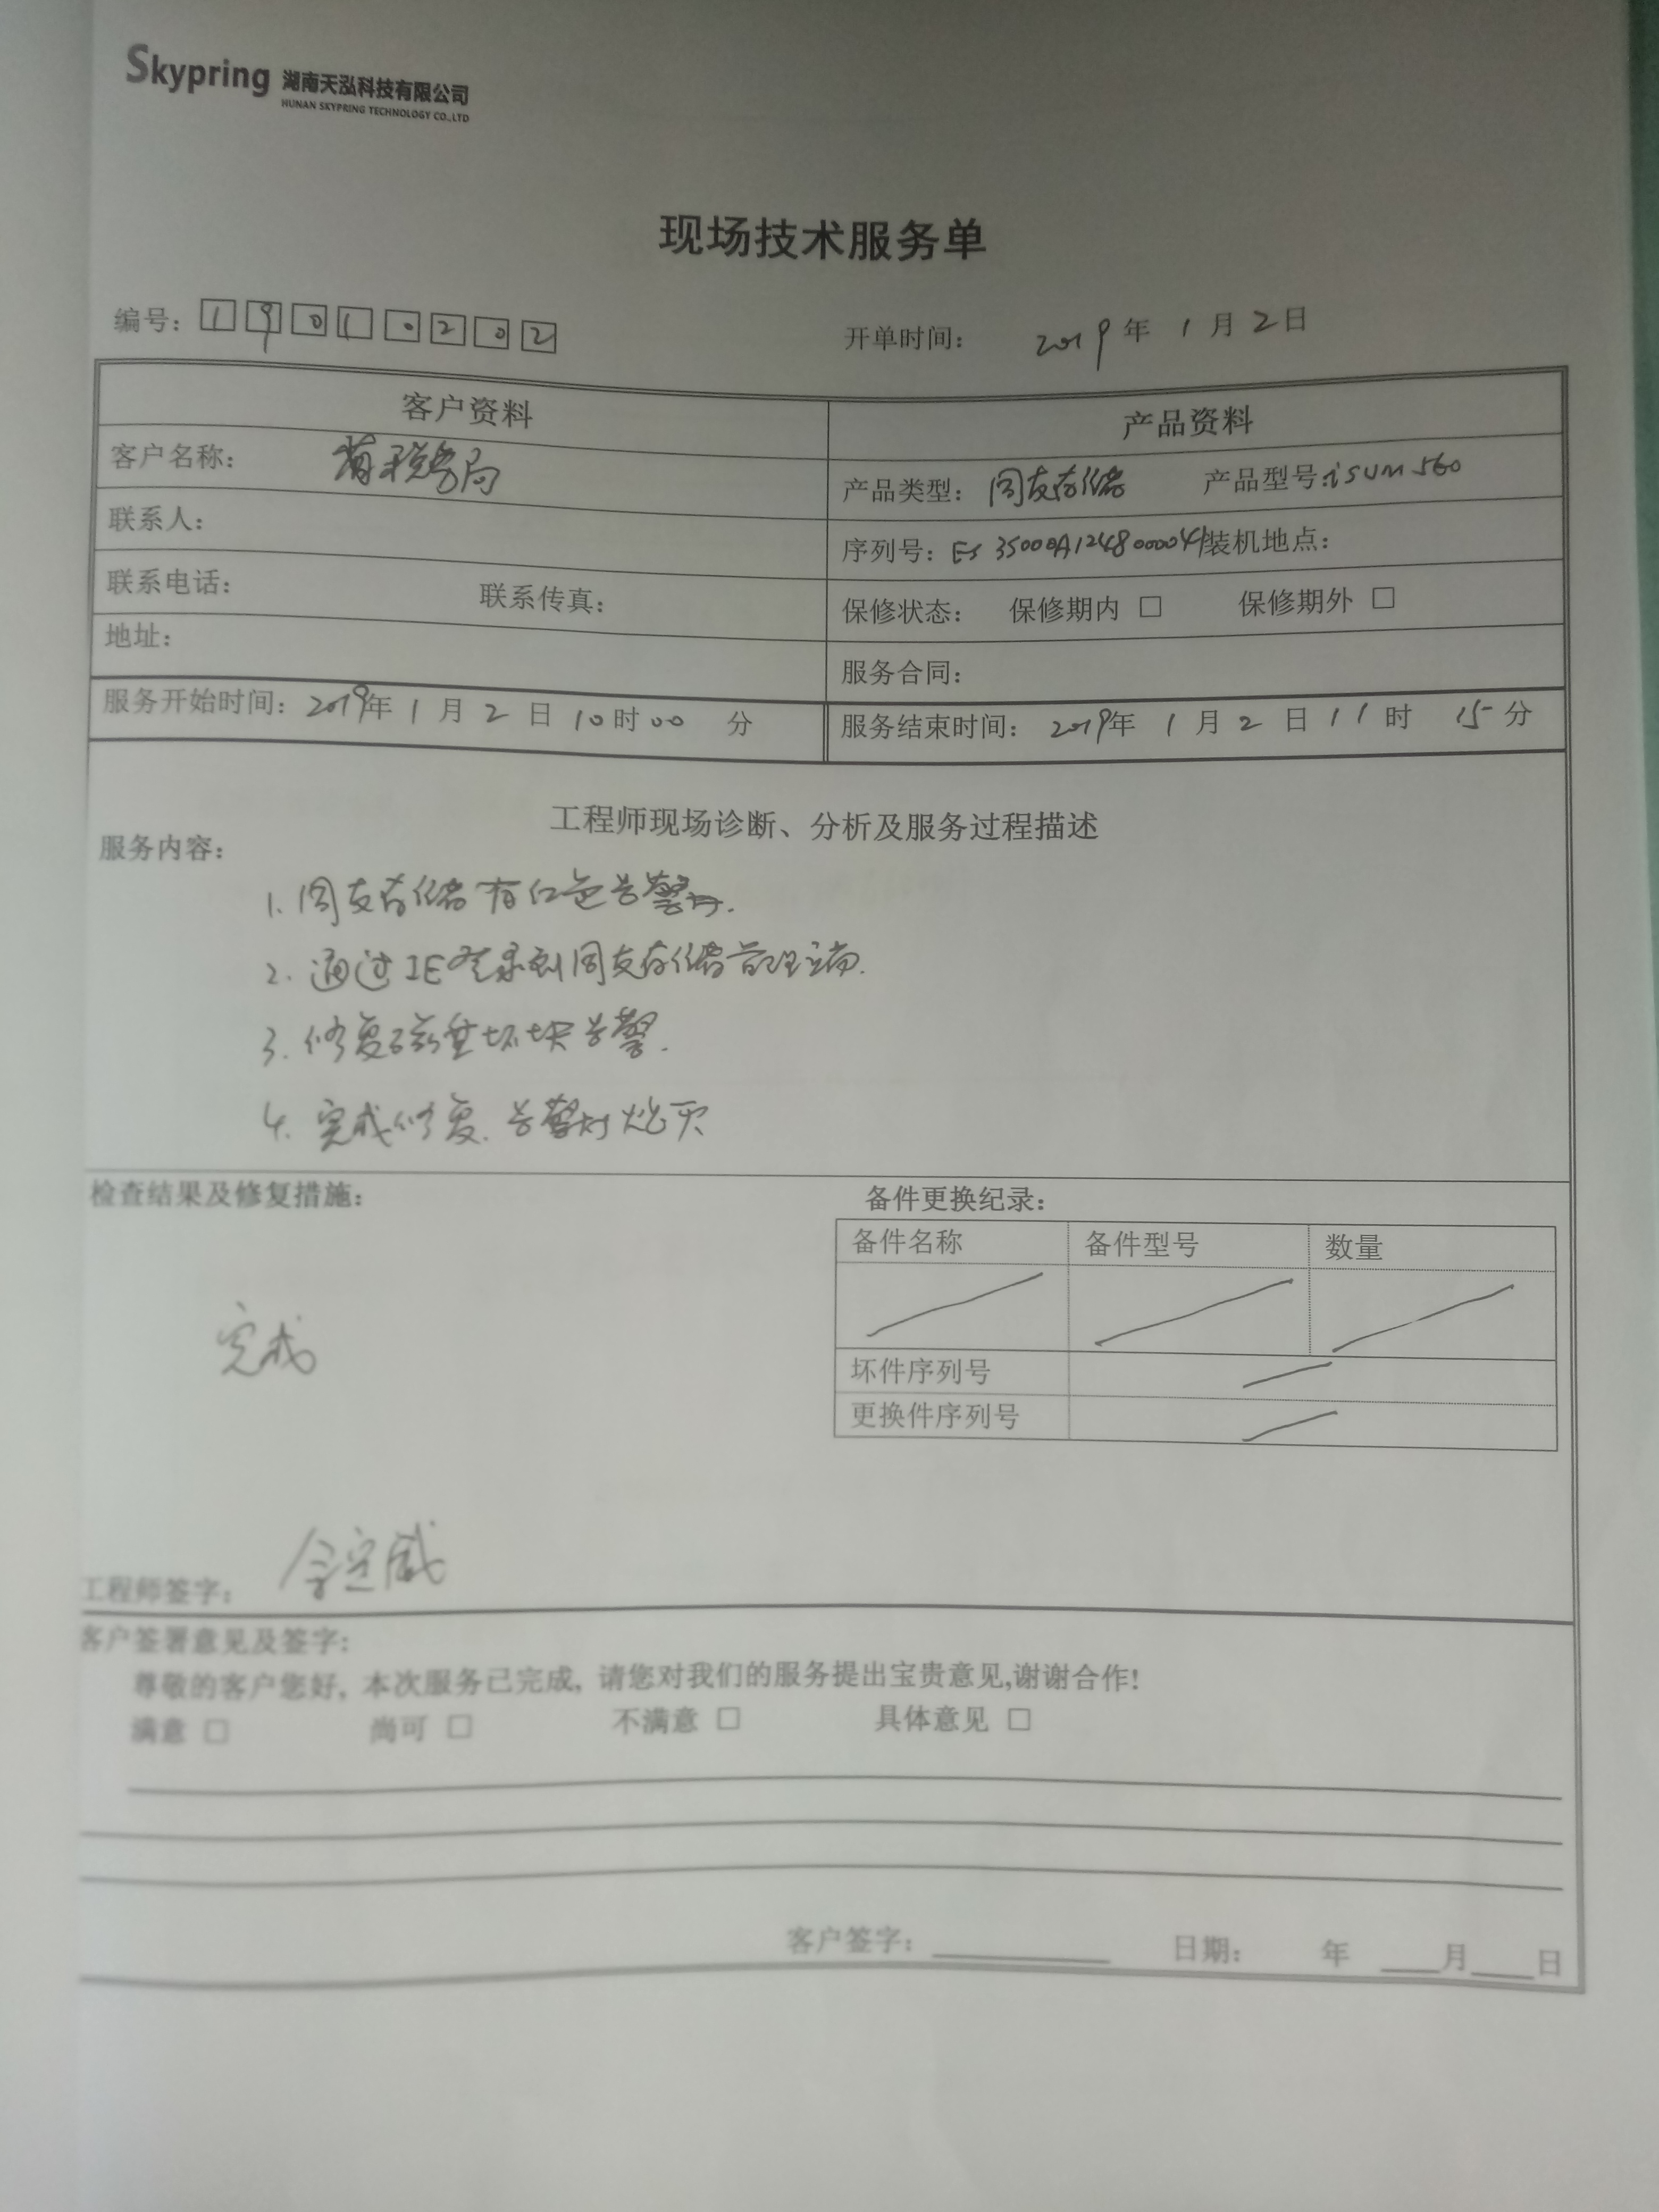 Skypring 湖南天泓科技有限公司
HUNAN SKYPRING TECHNOLOGY CO.,LTD
现场技术服务单
编号: 1 9 0 1 0 2 0 2 开单时间: 2019 年 1 月 2 日
客户资料 产品资料
客户名称: 省税务局
产品类型: 同友存储 产品型号: iSUM 560
联系人:
序列号: ES 35000A1248000041 装机地点:
联系电话: 联系传真:
保修状态: 保修期内 □ 保修期外 □
地址:
服务合同:
服务开始时间: 2019年 1 月 2 日 10 时 00 分 服务结束时间: 2019年 1 月 2 日 11 时 15 分
工程师现场诊断、分析及服务过程描述
服务内容:
1. 同友存储有红色告警灯.
2. 通过IE登录到同友存储管理端.
3. 修复磁盘坏块告警.
4. 完成修复. 告警灯熄灭
检查结果及修复措施: 备件更换纪录:
备件名称 备件型号 数量
完成
坏件序列号
更换件序列号
工程师签字:
客户签署意见及签字:
尊敬的客户您好, 本次服务已完成, 请您对我们的服务提出宝贵意见,谢谢合作!
满意 □ 尚可 □ 不满意 □ 具体意见 □
客户签字: 日期: 年 月 日